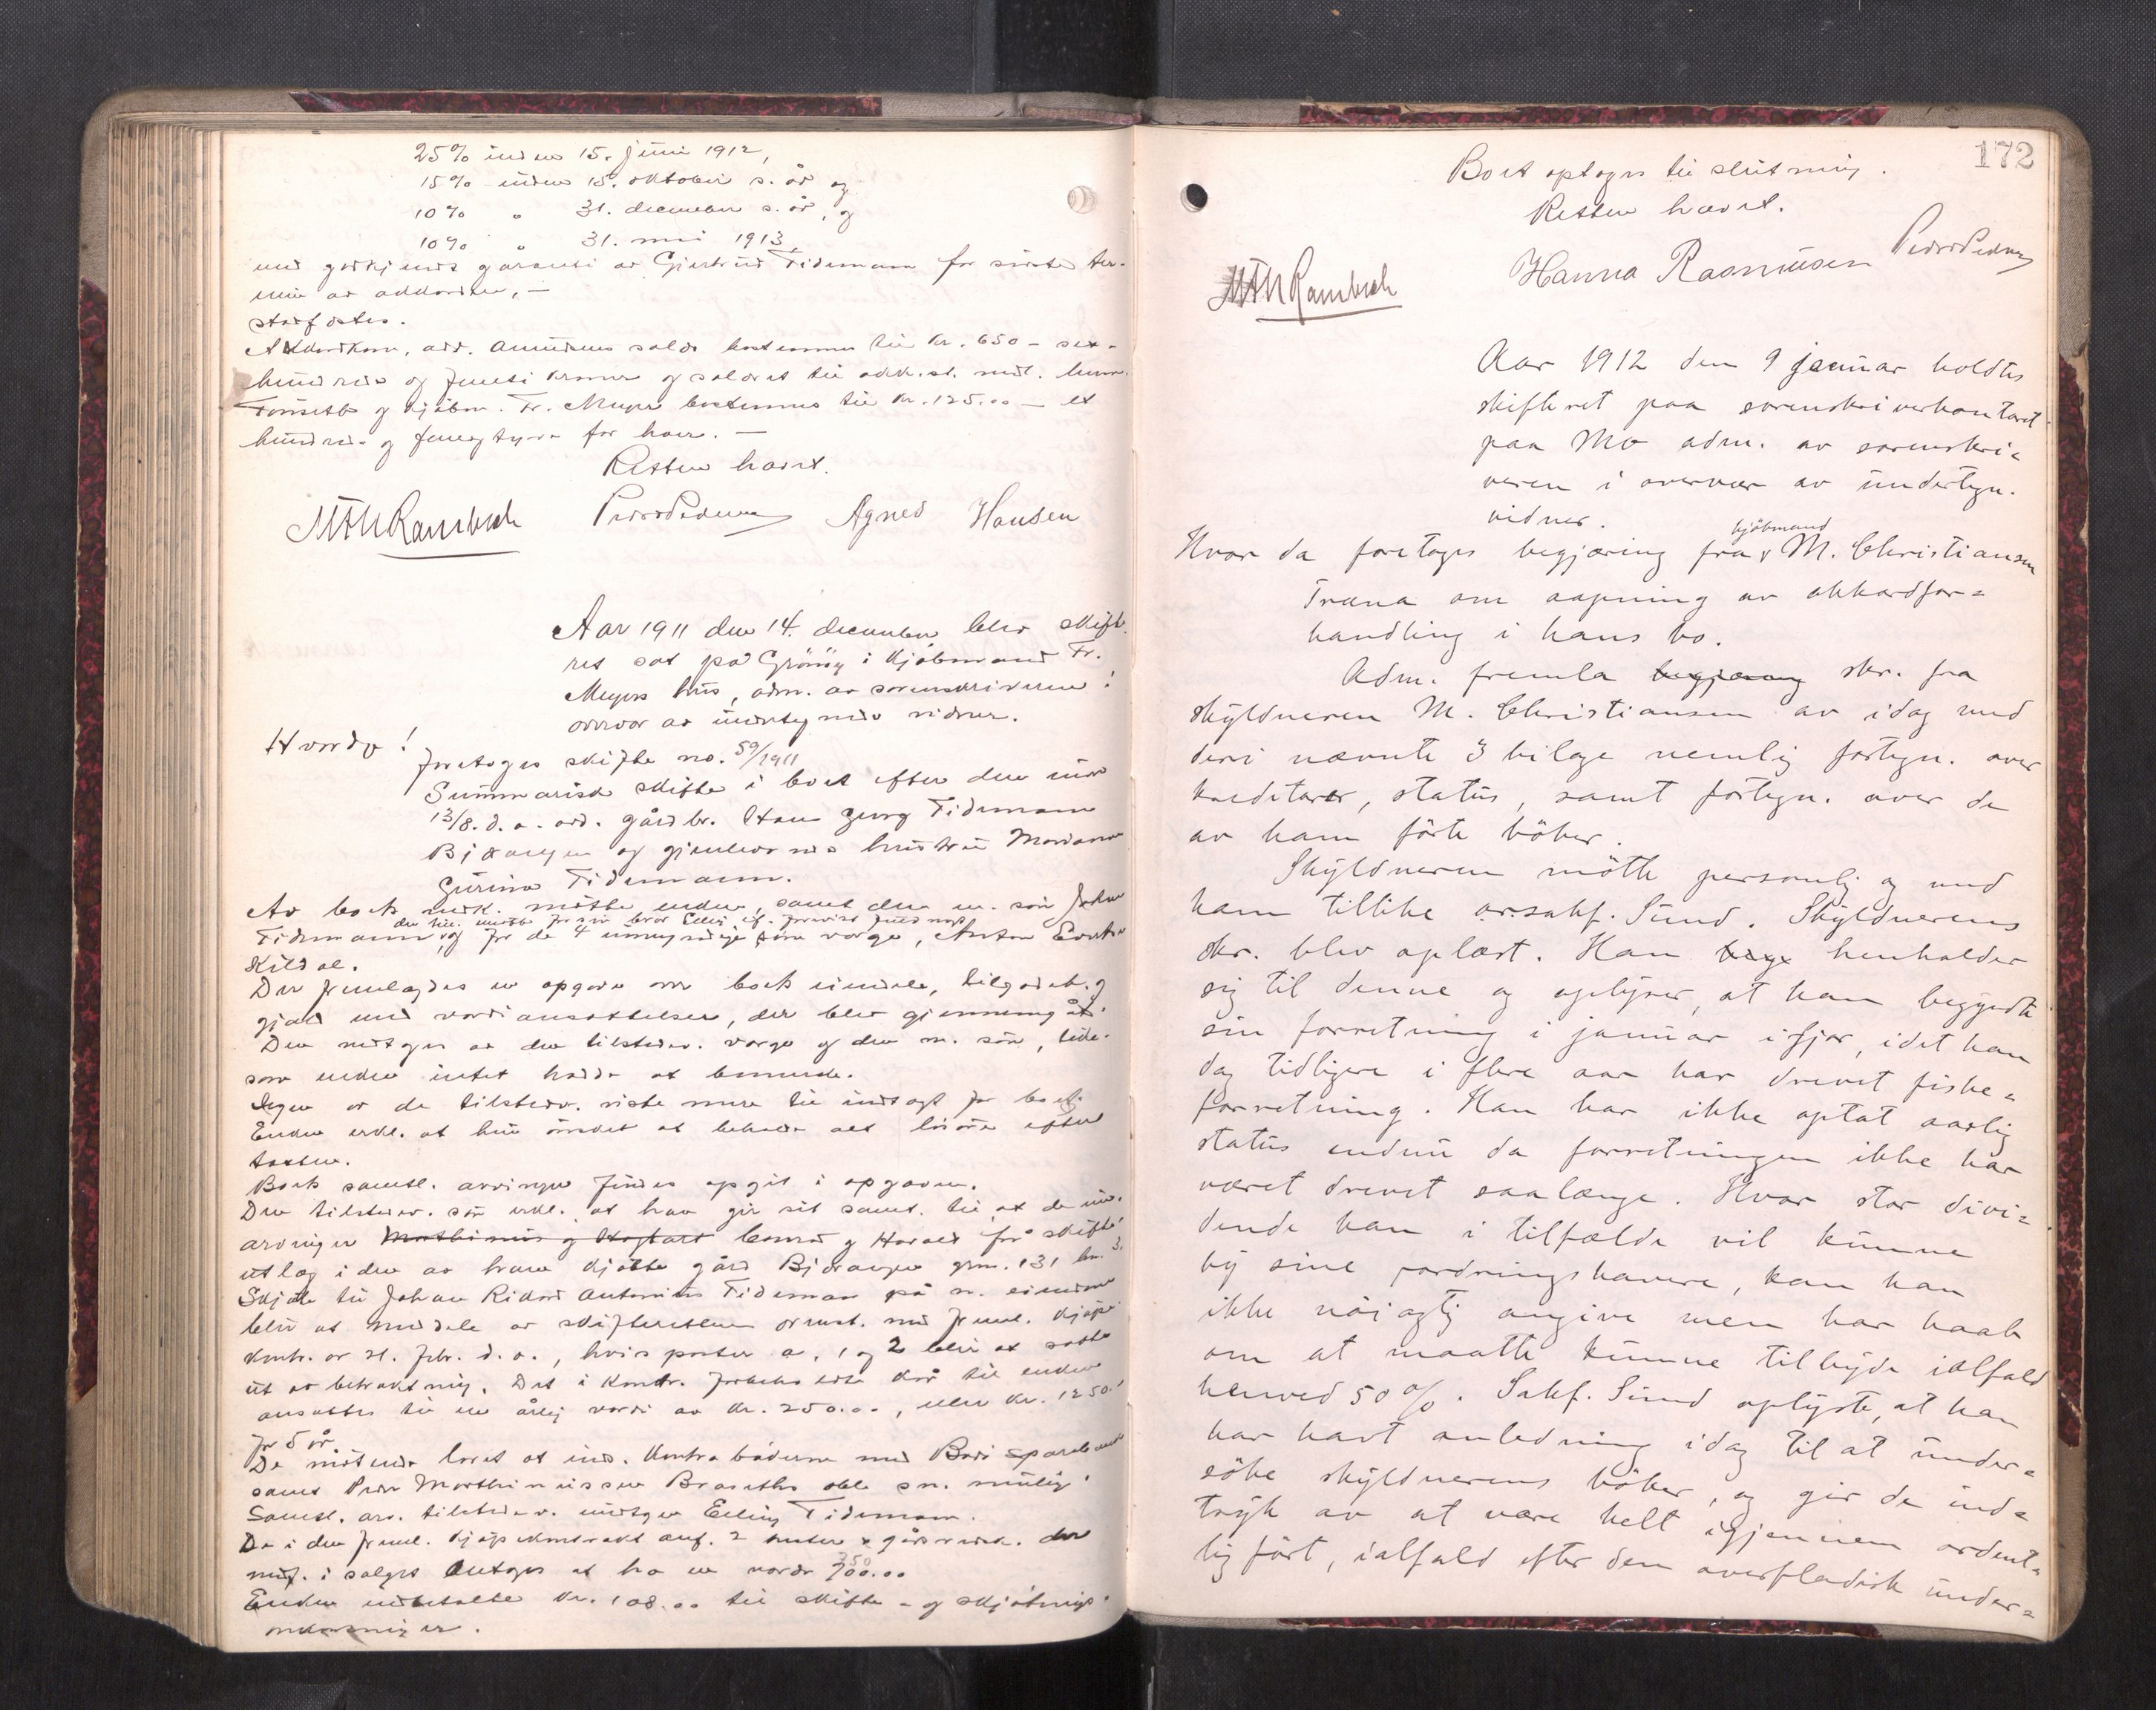 25% inden 15. juni 1912,
15% inden 15. oktober s. år og
10% " 31. december s. år, og
10% " 31. mai 1913,
med godkjendt garanti av Gjertrud Tidemann for sidste ter-
min av akkorden, —
stadfæstes.
Akkordkom. adv. Amundsens salær bestemmes til kr. 650 - sex-
hundrede og femti kroner og salæret til akk.st. medl. henr.
Tømseth og kjøbm. Fr. Meyer bestemmes til kr. 125.00 — et
hundrede og femogtyve for hver. —
Retten hævet.
MAURambech PederPedersen Agnes Hansen
Aar 1911 den 14. december blev skifte-
ret sat på Grönöy i kjøbmand Fr.
Meyers hus, adm. av sorenskriveren i
overvær av undertegnede vidner.
Hvorda!
foretoges skifte no. 59/1911
Summarisk skifte i boet efter den
13/8. d. a. avd. gårdbr. Hans Georg Tidemann
Bjærangen og gjenlevende hustru Mariane
Gurine Tidemann.
Av boets medk. mötte enken, samt den m. sön Johan
den till. mötte for sin bror Elling if. forevist fuldmagt
Tidemann, og for de 4 umyndige værge, Anton Evertsen
Kildal.
Der fremlagdes en opgave over boets eiendele, tilgodeh. og
gjæld med værdiansættelser, der blev gjennemgåt.
Den vedtoges av den tilstedev. værge og den m. sön, lide-
som enken intet hadde at bemerke.
Ingen av de tilstedev. viste mere til indtægt for boet.
Enken erkl. at hun önsket at beholde alt lösöre efter
taxten.
Boets samtl. arvinger findes opgit i opgaven.
Den tilstedev. sön erkl. at han gir sit samt. til, at de um.
arvinger Mathinius og Hagbart Conrad og Harald får skifte-
utlæg i den av ham kjøbte gård Bjærangen grn. 131 brn. 3.
Skjöte til Johan Rikard Antonius Tideman på n. eiendom
blir at meddele av skifteretten overenst. med freml. kjöpe-
kontr. av 21. febr. d. a., hvis poster a, 1 og 2 blir at sætte
ut av betraktning. Det i kontr. forbeholdte kår til enken
ansættes til en årlig værdi av kr. 250.00, eller kr. 1250.-
for 5 år.
De mötende lovet at ind. kontrabøkerne med Bodö sparebank
samt Peder Marthinussen Braseth obl. sn. mulig.
Samtl. arv. tilstedev. undtagen Elling Tidemann.
Da i den freml. kjöpekontrakt anf. 2 kuer & gårdredsk. der
medf. i salget antages at ha en værdi 350 700.00
Enken indbetalte kr. 108.00 til skifte- og skjötnings-
omkostninger.
172
Boet optoges til slutning.
Retten hævet.
MAURambech Hanna Rasmussen PederPedersen
Aar 1912 den 9 januar holdtes
skifteret paa sorenskriverkontoret
paa Mo adm. av sorenskri-
veren i overvær av undertegn.
vidner.
kjöbmand
Hvor da foretages begjæring fra M. Christiansen
Træna om aapning av akkordfor-
handling i hans bo.
Adm. fremla begjæring skr. fra
skyldneren M. Christiansen av idag med
deri nævnte 3 bilage nemlig fortegn. over
kreditorer, status, samt fortegn. over de
av ham förte böker.
Skyldneren mötte personlig og med
ham tillike o.r.sakf. Sund. Skyldnerens
skr. blev oplæst. Han begj henholder
sig til denne og oplyser, at han begyndte
sin forretning i januar ifjor, idet han
dog tidligere i flere aar har drevet fiske-
forretning. Han har ikke optat aarlig
status endnu da forretningen ikke har
været drevet saalænge. Hvor stor divi-
dende han i tilfælde vil kunne
by sine fordringshavere, kan han
ikke nöiagtig angive men har haab
om at maatte kunne tilbyde ialfald
henved 50%. Sakf. Sund oplyste, at han
har havt anledning idag til at under-
söke skyldnerens böker, og gir de ind-
tryk av at være helt igjennem ordent-
lig fört, ialfald efter den overfladisk under-